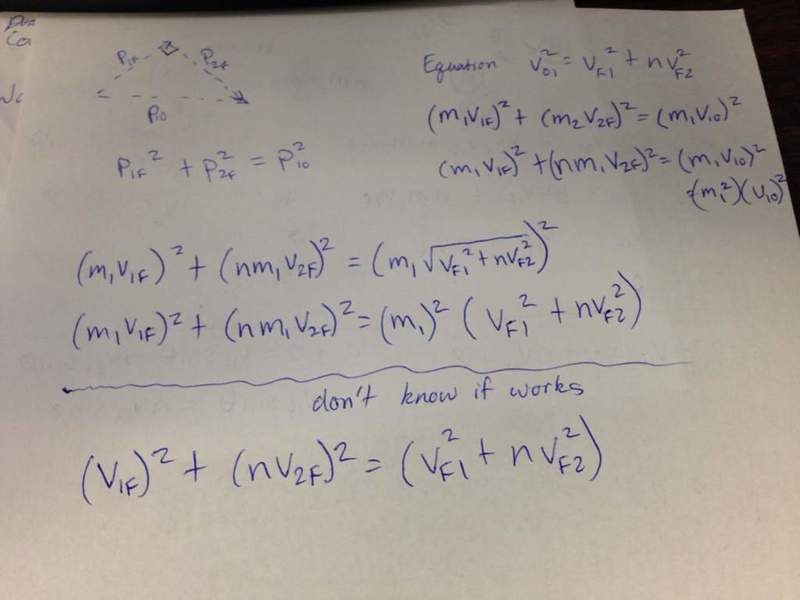 P₁F P₂F
P₁₀
P₁F² + P₂F² = P₁₀²
Equation V₀₁² = V_F1² + nV_F2²
(m₁V₁F)² + (m₂V₂F)² = (m₁V₁₀)²
(m₁V₁F)² + (nm₁V₂F)² = (m₁V₁₀)²
(m₁²)(V₁₀)²
(m₁V₁F)² + (nm₁V₂F)² = (m₁√(V_F1² + nV_F2²))²
(m₁V₁F)² + (nm₁V₂F)² = (m₁)² (V_F1² + nV_F2²)
don't know if works
(V₁F)² + (nV₂F)² = (V_F1² + nV_F2²)